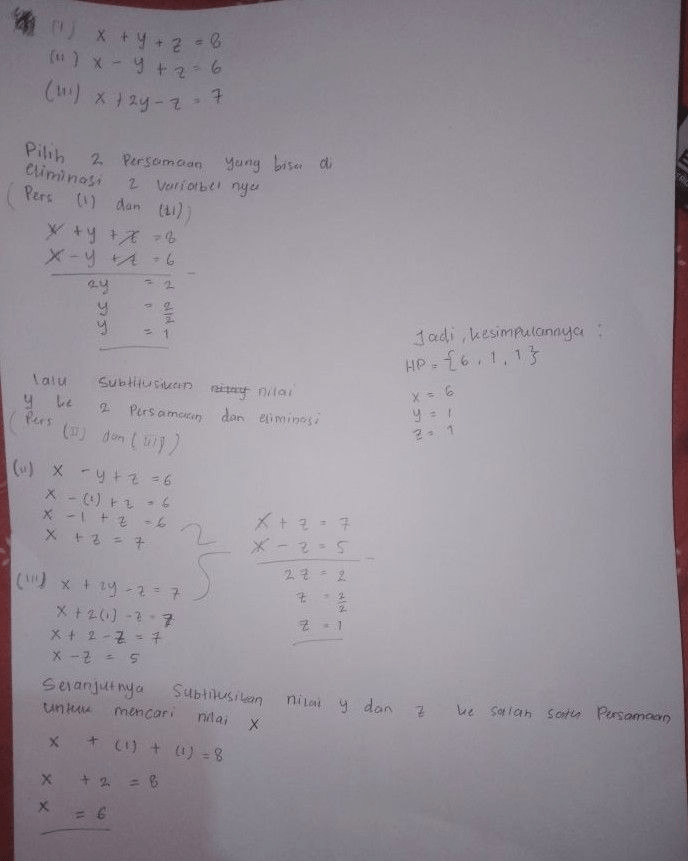 (I) x + y + z = 8
(II) x - y + z = 6
(III) x + 2y - z = 7
Pilih 2 Persamaan yang bisa di
eliminasi 2 variabel nya
(Pers (I) dan (II))
x + y + z = 8
x - y + z = 6
2y = 2 -
y = 2/2
y = 1
lalu Subtitusikan nilai
y ke 2 Persamaan dan eliminasi
(Pers (II) dan (III))
(II) x - y + z = 6
x - (1) + z = 6
x - 1 + z = 6
x + z = 7
(III) x + 2y - z = 7
x + 2(1) - z = 7
x + 2 - z = 7
x - z = 5
x + z = 7
x - z = 5
2z = 2 -
z = 2/2
z = 1
Selanjutnya Subtitusikan nilai y dan z ke salah satu Persamaan
untuk mencari nilai x
x + (1) + (1) = 8
x + 2 = 8
x = 6
Jadi, kesimpulannya :
HP = {6, 1, 1}
x = 6
y = 1
z = 1